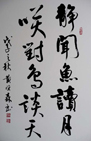 静聞魚讀月
咲對鳥談天
戊子之秋